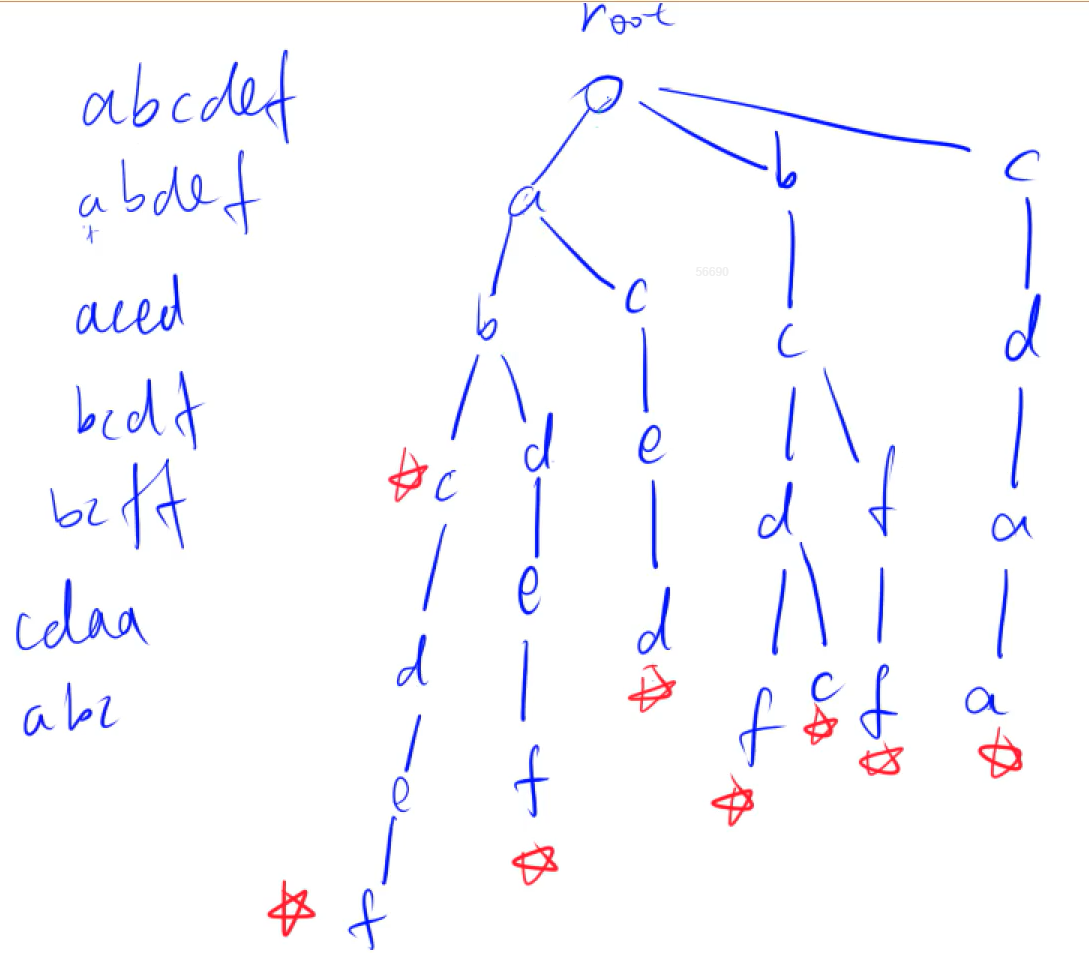 root
abcdef
abdef
aced
bcdf
bcff
cdaa
abc
a b c
b c c d
c d e c d f a
d e d f c f a
e f
f
56690